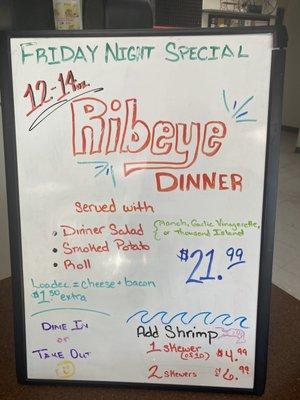 FRIDAY NIGHT SPECIAL
12-14oz.
Ribeye
DINNER
Served with
• Dinner Salad {Ranch, Garlic Vinegerette, or Thousand Island
• Smoked Potato
• Roll
$21.99
Loaded = cheese + bacon
$1.50 extra
DINE IN
or
TAKE OUT
Add Shrimp
1 skewer (of 10) $4.99
2 skewers $6.99